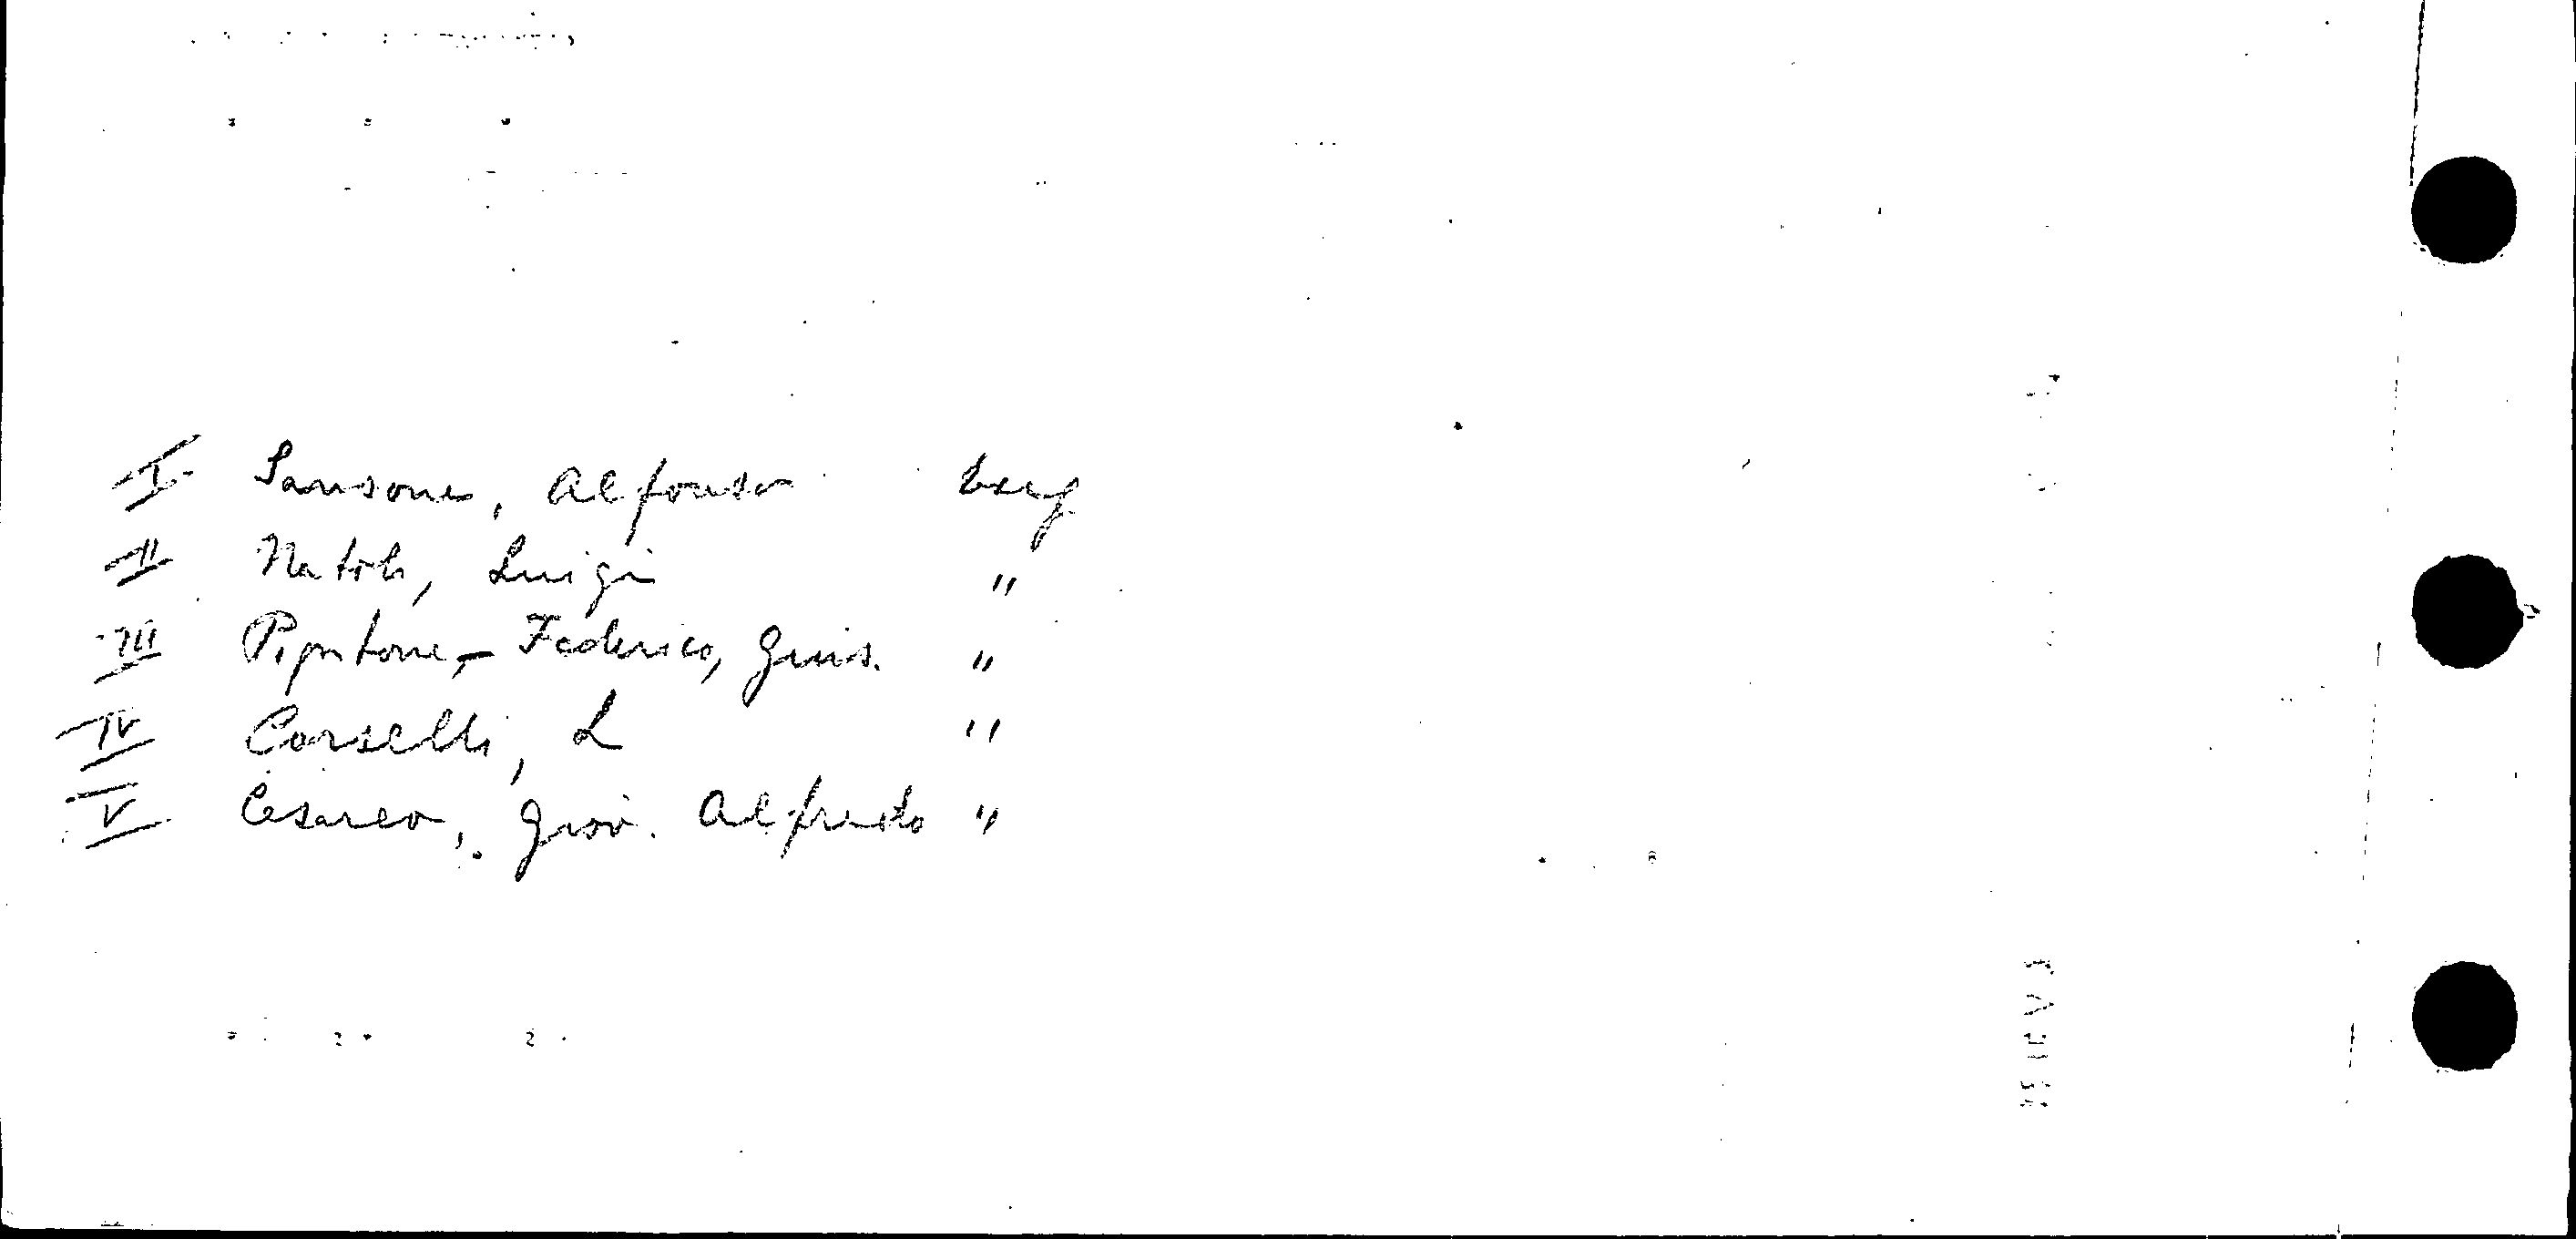 I Sansone, Alfonso
II Natoli, Luigi "
III Pipitone-Federico, Gius. "
IV Corselli, L "
V Cesareo, Giov. Alfredo "